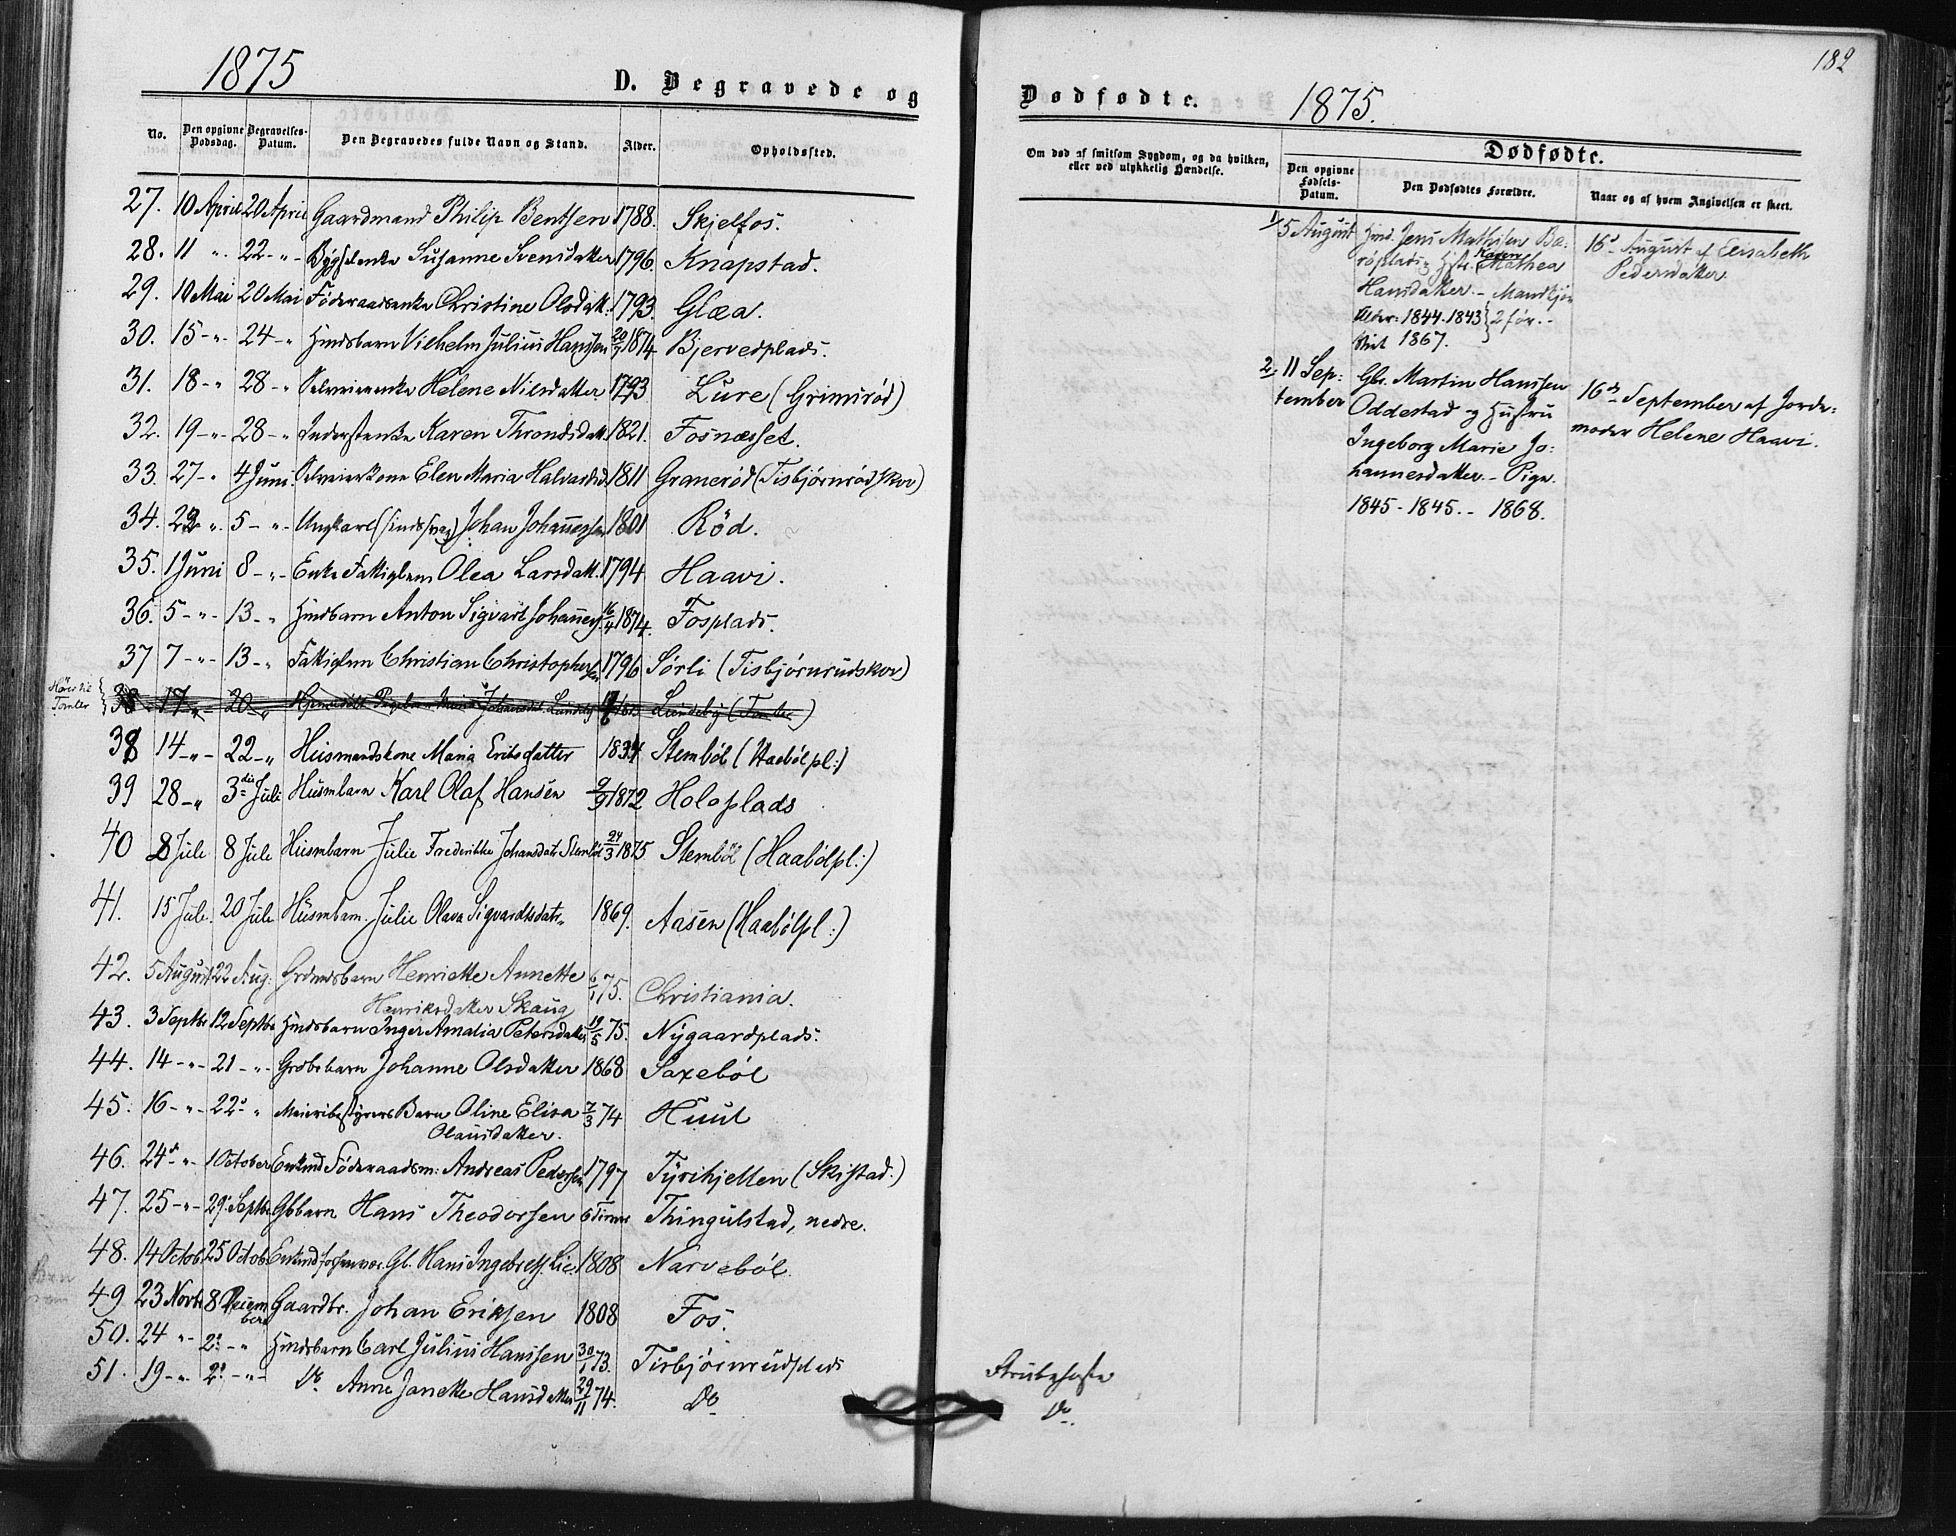 1875
D. Begravede og
No.
Den opgivne Dødsdag.
Begravelses-Datum.
Den Begravedes fulde Navn og Stand.
Alder.
Opholdssted.
27. 10 April 20 April Gaardmand Philip Bentsen 1788. Skjelfos.
28. 11 " 22 - " - Bygselenke Susanne Svensdatter 1796. Knapstad.
29. 10 Mai 20 Mai Føderaadsenke Christine Olsdatt. 1793. Glæa.
30. 15 - " 24 - " Hmdsbarn Vilhelm Julius Hansen 1874 Bjervedplads.
31. 18 - " 28 - " Selveierenke Helene Nilsdatter 1793 Lure (Grimsrød)
32. 19 - " 28 - " Inderstenke Karen Throndsdatt. 1821. Fosnæsset.
33. 27 - " 4 Juni. Selveierkone Elen Maria Halvardsd. 1811 Granerød (Tisbjørnrødskov)
34. " 5 - " - Ungkarl (sindssvag) Johan Johannessen 1801 Rød.
35. 1 Juni 8 - " - Enke Fattiglem Olea Larsdatt. 1794 Haavi.
36. 5 - " - 13 - " Hmdsbarn Anton Sigvart Johannes. 16/4 1874. Fosplads.
37 7 - " - 13 - " Fattiglem Christian Christophersen 1796 Sørli (Tisbjørnrudskov)
Tomter
17 - " - 20 - " Lundeby
38 14 - " - 22 - " Husmandskone Maria Eriksdatter 1834 Stembøl (Haabølpl:)
39 28 - " 3die Juli Husmbarn Karl Olaf Hansen 9/9 1872 Holoplads
40 8 Jule 8 Jule Husmbarn Julie Frederikke Johansdatr Stembøl 24/3 1875 Stembøl (Haabølpl:)
41. 15 Jule. 20 Jule Husmbarn. Julie Olava Sigvardtsdatr. 1869. Aasen (Haabølpl:)
42. 5 August 22 Aug. Grdmdsbarn Henriette Annette 6/1 75. Christiania.
Henriksdatter Skaug
43. 3 Septbr 12 Septbr Hmdsbarn Inger Amalia Petersdatter 19/5 75. Nygaardplads.
44. 14 - " - 21 - " - Grdbrbarn Johanne Olsdatter 1868 Saxebøl
45. 16 - " - 22 - " Meieribestyrers Barn Oline Elisa 7/3 74 Huul
Olausdatter.
46. 24 - " - 1 October Enkmd Føderaadsm: Andreas Pedersen 1797 Tyrihjellen (Skistad.)
47. 25 - " - 29 Septbr Gbbarn Hans Theodorsen 6 Timer Thingulstad, nedre.
48. 14 Octob. 25 Octob. Enkemd Gl. Hans Ingebretss. Lie 1808 Narvebøl.
49 23 Novbr 8 Decem
ber Gaardbr. Johan Eriksen 1808 Fos.
50. 24 " - 2 - " Hmdsbarn Carl Julius Hansen 30/1 73. Tisbjørnrudplads
51. 19 - " 2 - " - Do. Anne Janette Hansdatter 29/11 74. Do
182
Dødfødte.
1875.
Om død af smitsom Sygdom, og da hvilken,
eller ved ulykkelig Hændelse.
Dødfødte.
Den opgivne Fødsels-Datum.
Den Dødfødtes Forældre.
Naar og af hvem Angivelsen er skeet.
1/ 5 August Hmd. Jens Mathisen Bæ:
røplads og Hstr. Karen Mathea
Hansdatter. - Mandkjøn
Alder: 1844-1843 } 2 før. -
Viet 1867.
16 August af Elisabeth
Pedersdatter
2/ 11 Sep:
tember
Gbr. Martin Hanssen
Oddestad og Hustru
Ingeborg Marie Jo:
hannesdatter. - Pige.
1845 - 1845. - 1868.
16de September af Jorde=
moder Helene Haavi.
Strubehoste
Do.